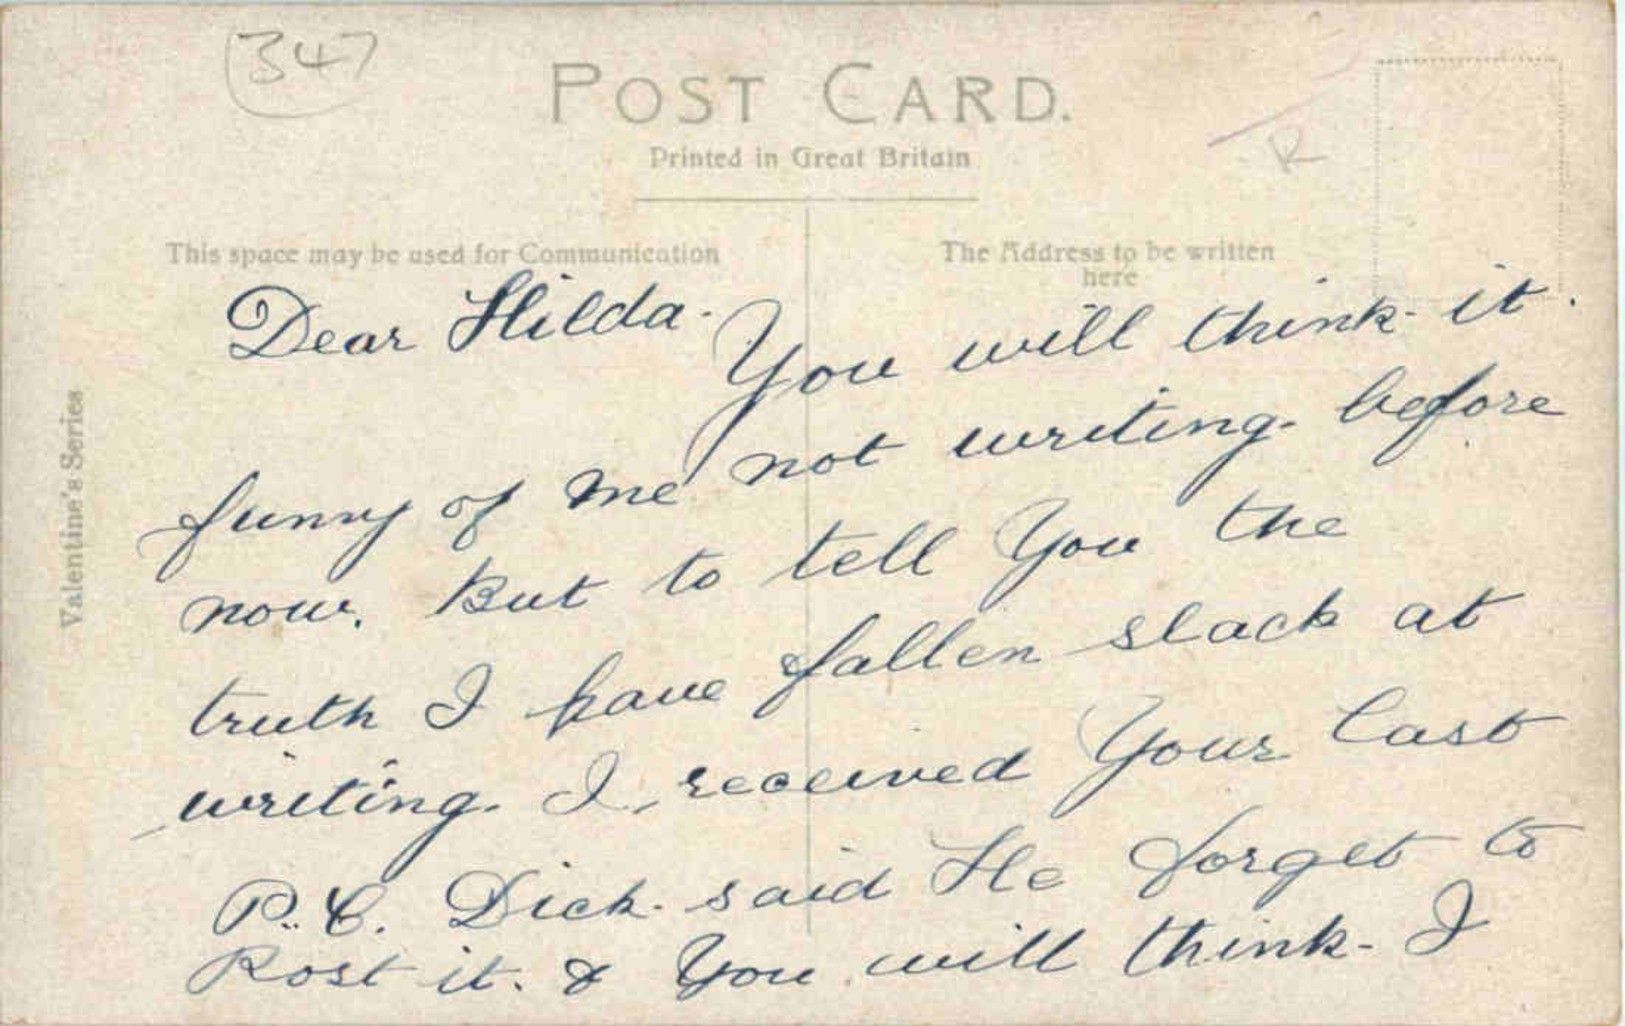 347
POST CARD.
Printed in Great Britain
R
This space may be used for Communication
The Address to be written
here
Valentine's Series
Dear Hilda. You will think it.
funny of me not writing. before
now. But to tell You the
truth I have fallen slack at
writing. I received Your last
P.C. Dick. said He forget to
Post it. & You will think I